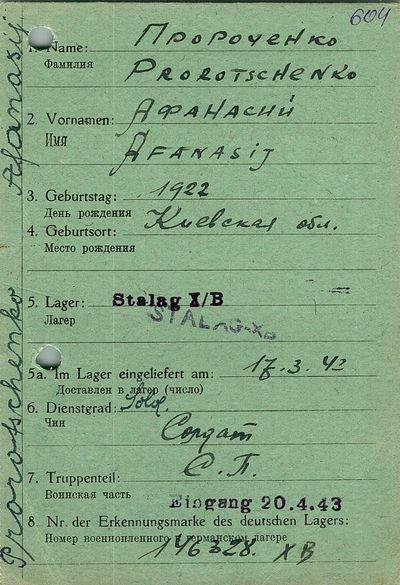 604
1. Name: Пророченко
Фамилия Prorotschenko
2. Vornamen: Афанасий
Имя Afanasij
3. Geburtstag: 1922
День рождения
4. Geburtsort: Киевская обл.
Место рождения
5. Lager: Stalag X/B
Лагерь STALAG-XB
5a. Im Lager eingeliefert am: 17.3.43
Доставлен в лагер (число)
6. Dienstgrad: Sold.
Чин Солдат
7. Truppenteil: С.П.
Воинская часть Eingang 20.4.43
8. Nr. der Erkennungsmarke des deutschen Lagers:
Номер военнопленного в германском лагере
146328. XB
Prorotschenko Afanasij